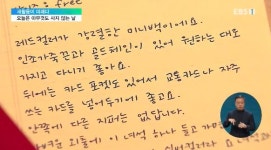 EBS1
오늘은 아무것도 사지 않는 날
레드컬러가 강렬한 미니백이에요.
인조가죽끈과 골드체인이 있어 원하는대로
가지고 다니기 좋아요.
뒤에는 카드 포켓도 있어서 교통카드나 자주
쓰는 카드를 넣어두기에 좋고요.
안쪽에 다른 지퍼는 없답니다.
이 녀석 하나 들고